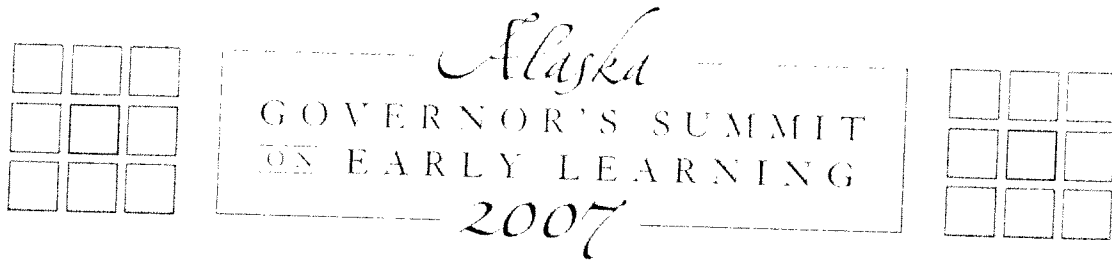 Alaska
GOVERNOR'S SUMMIT
ON EARLY LEARNING
2007